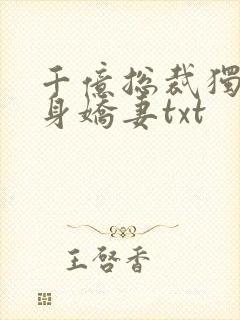 千億总裁獨
身嬌妻txt
王啓香